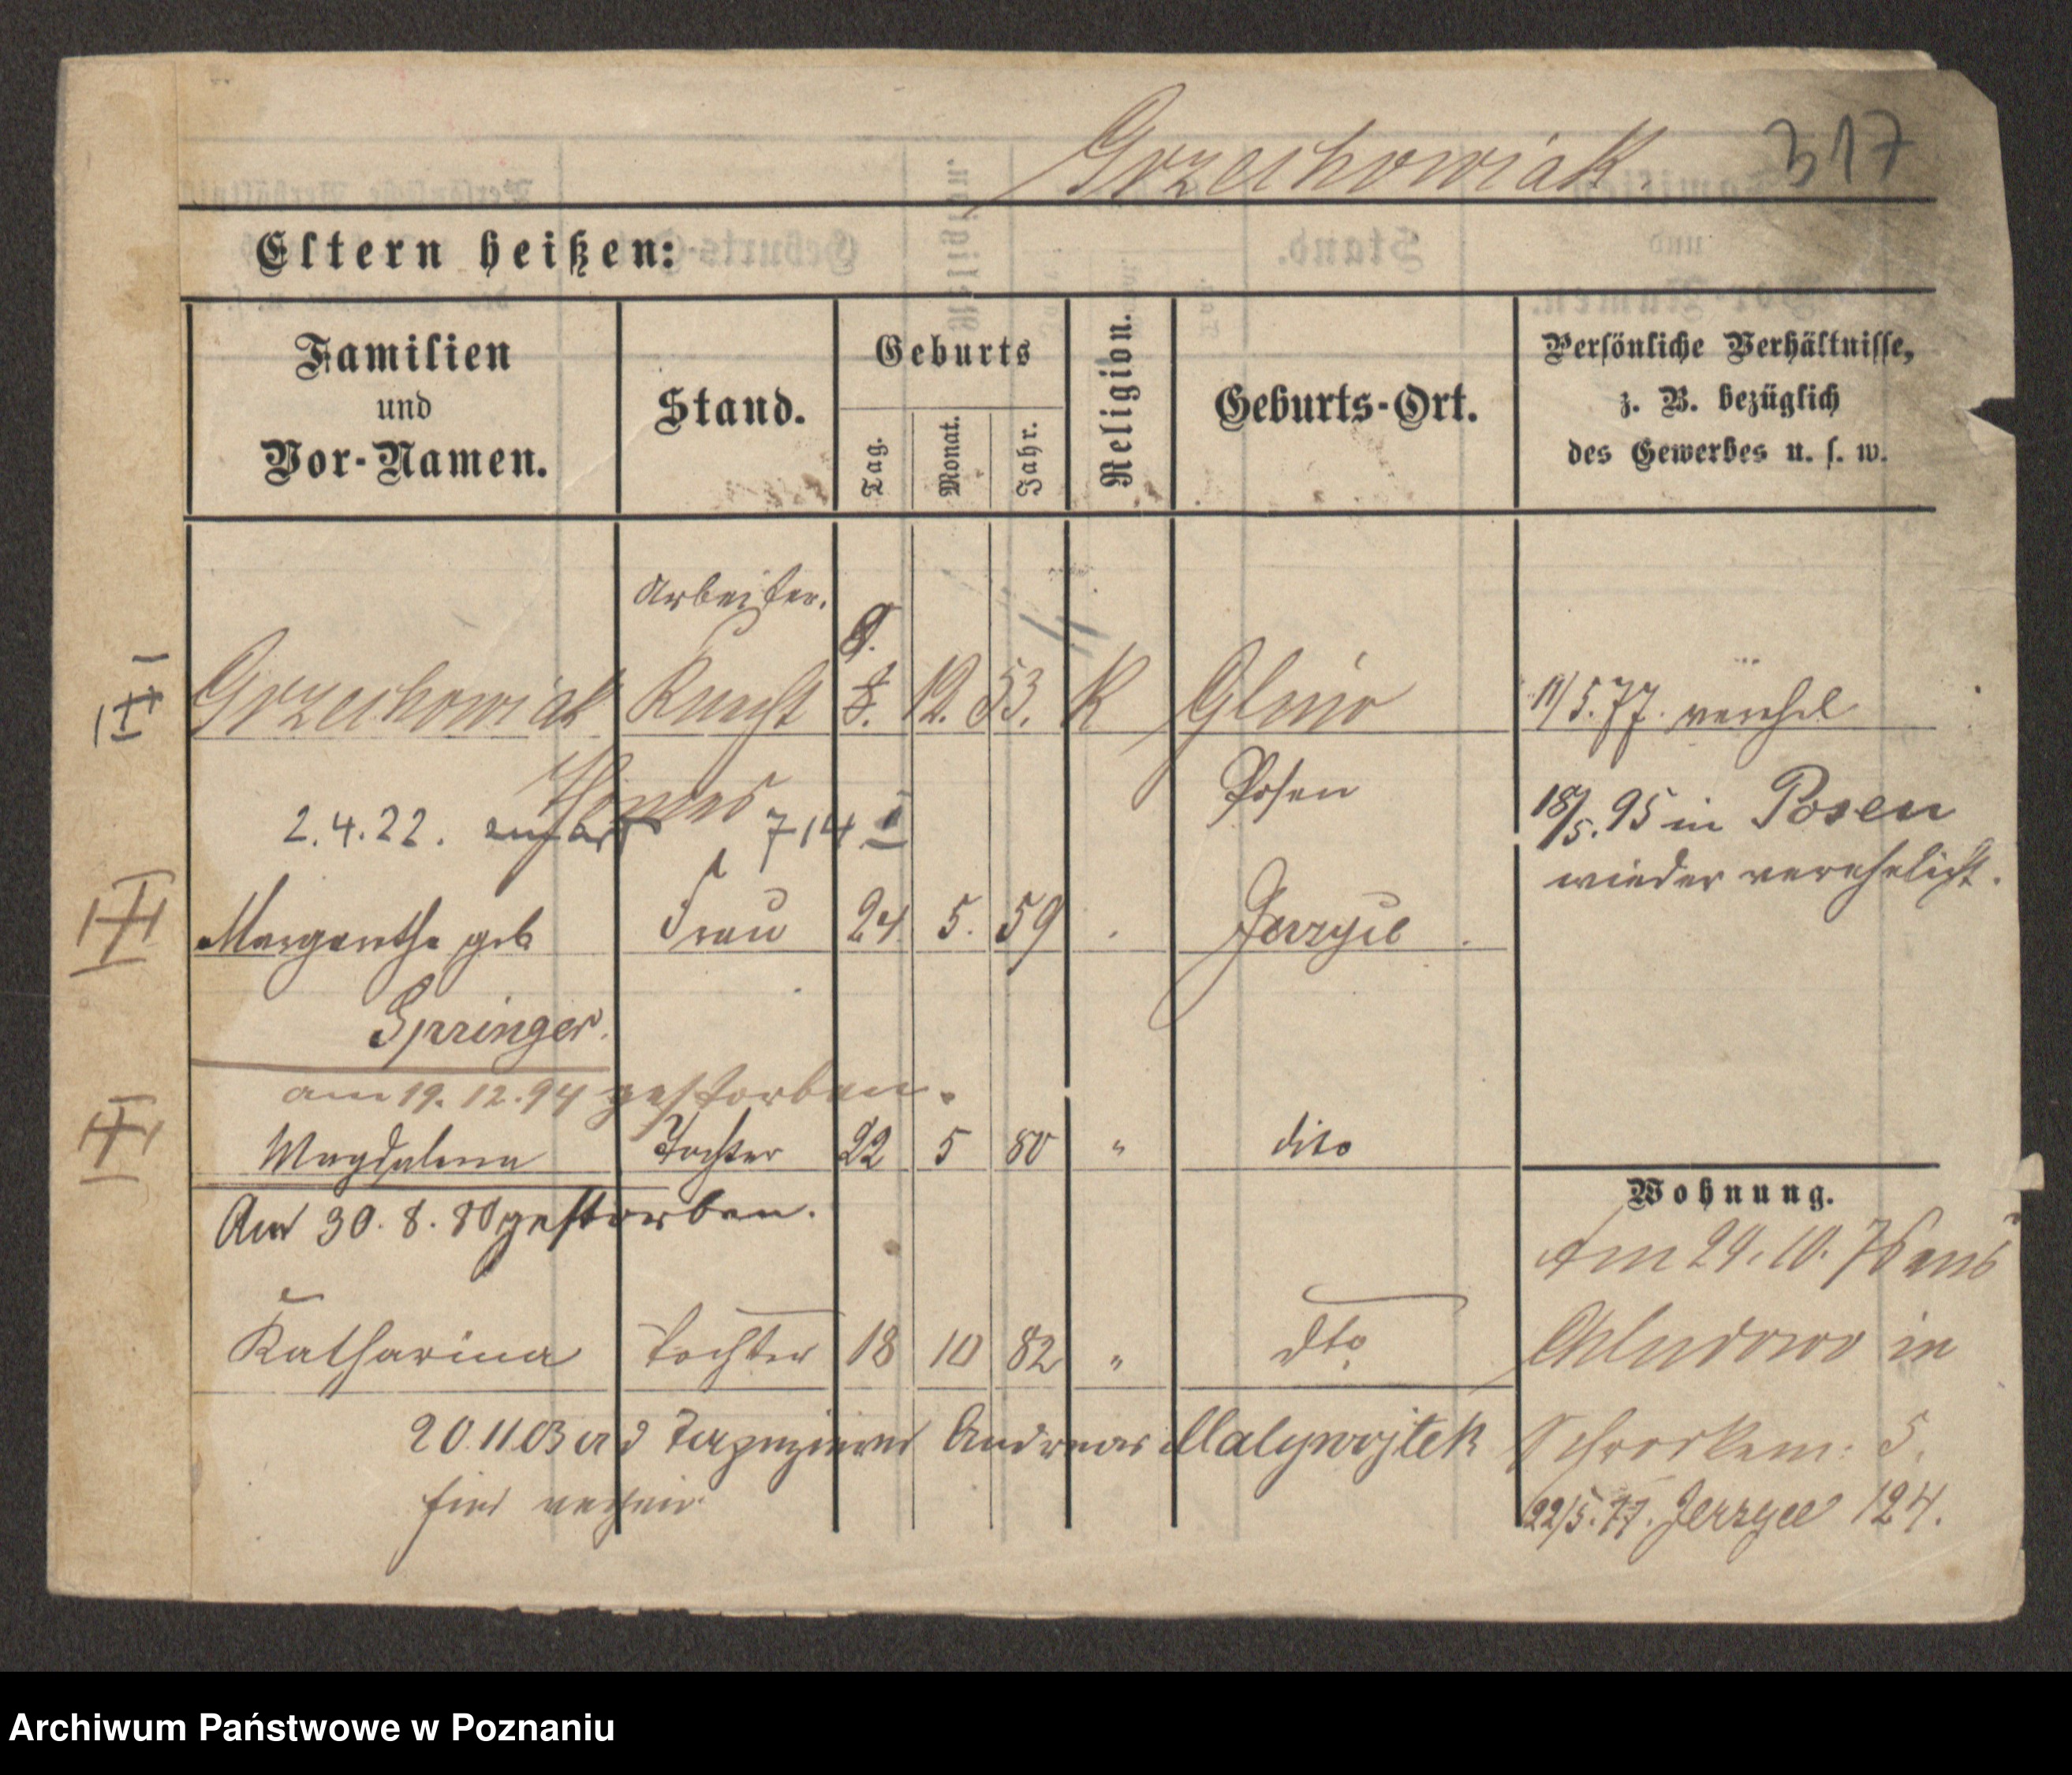 Grzechowiak. 317
Eltern heißen:
Familien und Vor-Namen. Stand. Geburts Tag. Monat. Jahr. Religion. Geburts-Ort. Persönliche Verhältnisse, z. B. bezüglich des Gewerbes u. s. w.
Arbeiter.
9.
III Grzechowiak Knecht 8. 12. 53. K 11/5.77. verehel
Thomas Posen 18/5.95 in Posen
2.4.22. 714 I
wieder verehelicht.
III Margarethe geb Frau 24 5. 59 Jerzyce
Springer.
am 19.12.94 gestorben.
III Magdalena Tochter 22 5 80 " dito
Wohnung.
Am 30.8.80 gestorben.
Am 24.10.76 aus
Katharina Tochter 18 10 82 " dto
Chludowo in
20.11.03 Andreas Malywojtek 5.
22/5.77. Jerzyce 124.